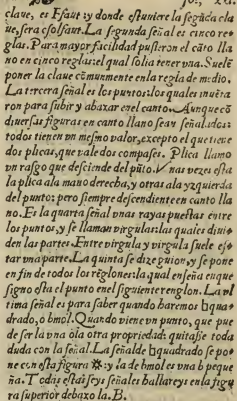 clave, es Ffaut: y donde estuviere la segũda cla
ue, sera csolfaut. La segunda señal es cinco re
glas. Para mayor facilidad pusieron el cãto lla
no en cinco reglas: el qual solia tener vna. Suelẽ
poner la clave cõmunmente en la regla de medio.
La tercera señal es los puntos: los quales inuẽta
ron para subir y abaxar en el canto. Aunque cõ
diuersas figuras en canto llano seã señalados:
todos tienen vn mesmo valor, excepto el que tiene
dos plicas, que vale dos compases. Plica llamo
vn rasgo que desciende del pũto. Vnas vezes esta
la plica ala mano derecha, y otras ala yzquierda
del punto: pero siempre descendiẽte en canto lla
no. Es la quarta señal vnas rayas puestas entre
los puntos, y se llaman virgulas: las quales diui-
den las partes. Entre virgula y virgula suele es-
tar vna parte. La quinta se dize guion, y se pone
en fin de todos los rẽglones: la qual enseña en que
signo esta el punto en el siguiente renglon. La vl
tima señal es para saber quando haremos ♮qua
drado, o bmol. Quando viene vn punto, que pue
de ser la vna o la otra propriedad: quitase toda
duda con la señal. La señal de ♮quadrado se po-
ne con esta figura ※: y la de bmol es vna b peque
ña. Todas estas seys señales hallareys en la figu
ra superior debaxo la. B.